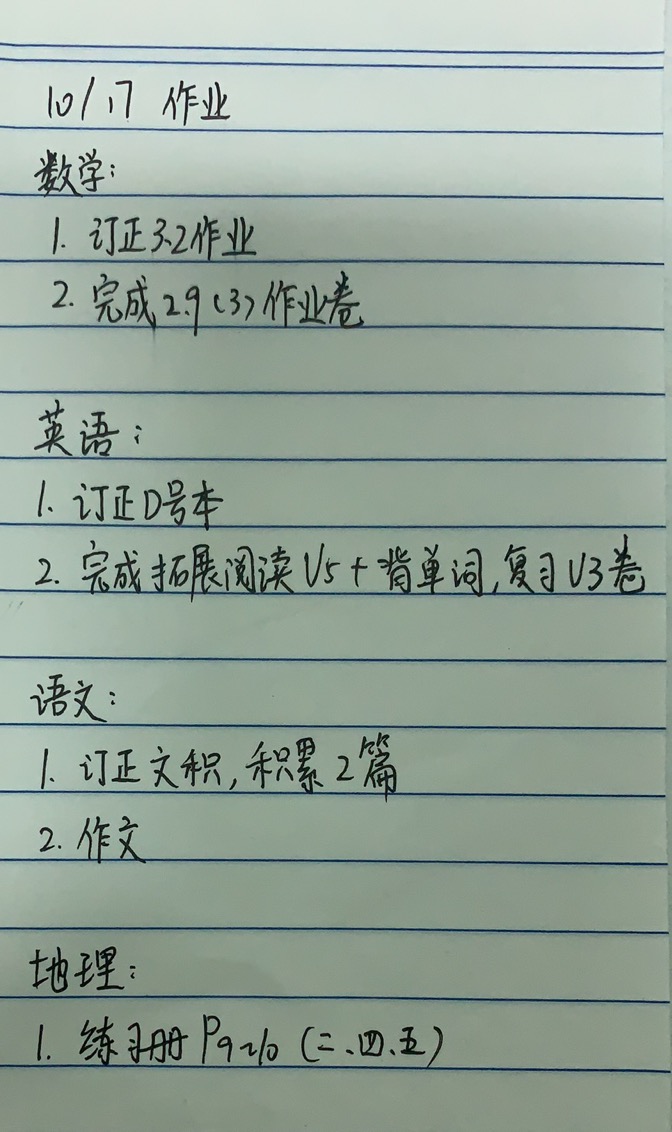 10/17 作业
数学:
1. 订正3.2作业
2. 完成2.9(3)作业卷
英语:
1. 订正D号本
2. 完成拓展阅读U5+背单词,复习U3卷
语文:
1. 订正文积,积累2篇
2. 作文
地理:
1. 练习册P9~10(二、四、五)